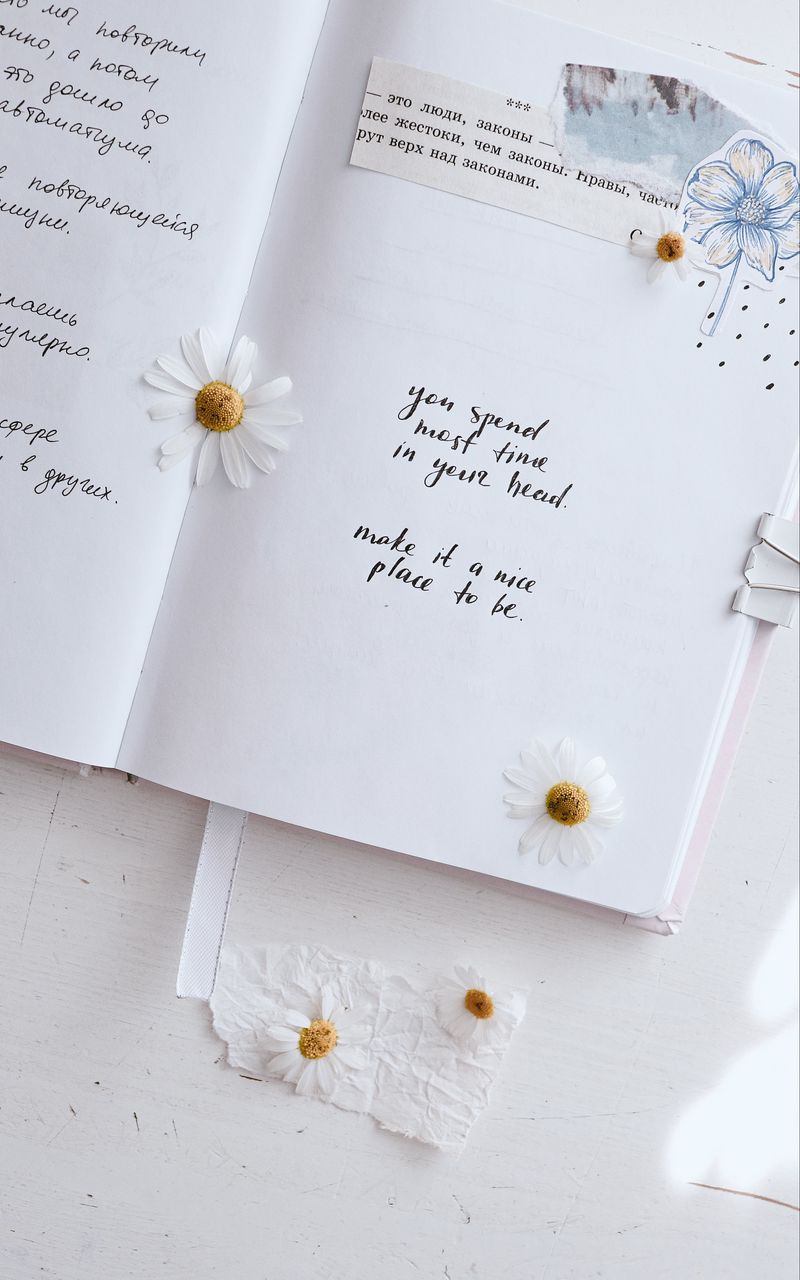 мы повторили
а потом
это дошло до
автоматизма.
повторяющейся
сфере
в других.
***
— это люди, законы —
лее жестоки, чем законы. Нравы, часто
рут верх над законами.
you spend
most time
in your head.
make it a nice
place to be.